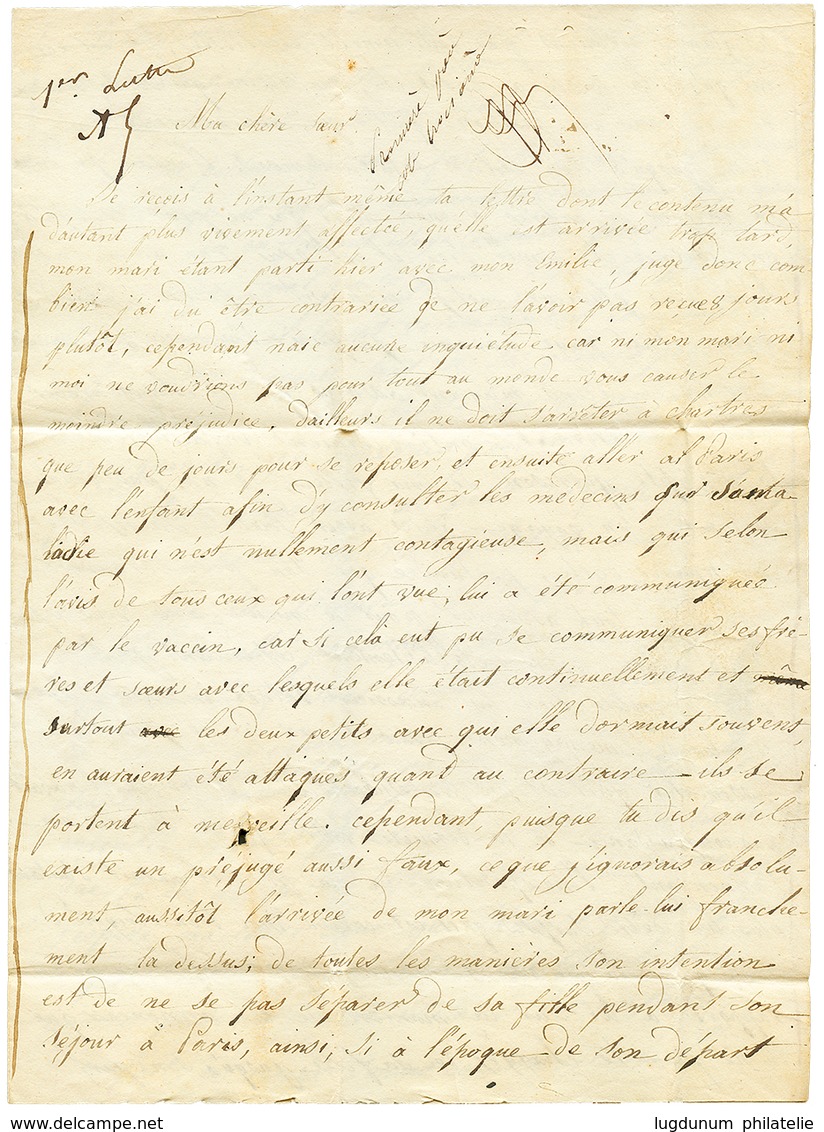 1er Lettre
Première vue
Ma chère Sœur
Je reçois à l'instant même ta lettre dont le contenu m'a
d'autant plus vivement affectée, qu'elle est arrivée trop tard,
mon mari étant parti hier avec mon Emilie, juge donc com-
bien j'ai du être contrariée de ne l'avoir pas reçue 8 jours
plutôt, cependant n'aie aucune inquiétude car ni mon mari ni
moi ne voudrions pas pour tout au monde vous causer le
moindre préjudice, d'ailleurs il ne doit s'arrêter à Chartres
que peu de jours pour se reposer, et ensuite aller al Paris
avec l'enfant afin d'y consulter les medecins sur sa ma-
ladie qui n'est nullement contagieuse, mais qui selon
l'avis de tous ceux qui l'ont vue, lui a été communiquée
par le vaccin, car si celà eut pu se communiquer ses frè-
res et sœurs avec lesquels elle était continuellement et même
surtout avec les deux petits avec qui elle dormait souvent,
en auraient été attaqués quand au contraire ils se
portent à merveille. cependant, puisque tu dis qu'il
existe un préjugé aussi faux, ce que j'ignorais absolu-
ment, aussitôt l'arrivée de mon mari parle-lui franche-
ment la dessus; de toutes les manières son intention
est de ne se pas séparer de sa fille pendant son
séjour à Paris, ainsi, si à l'époque de son départ
lugdunum philatelie
www.delcampe.net